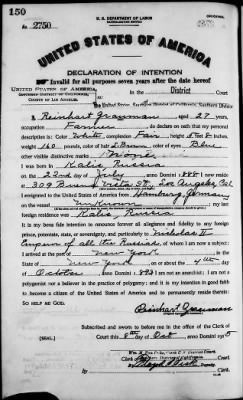 150
U. S. DEPARTMENT OF LABOR
No. 2750
UNITED STATES OF AMERICA
DECLARATION OF INTENTION
Invalid for all purposes seven years after the date hereof
UNITED STATES OF AMERICA, In the District Court
SOUTHERN DISTRICT OF CALIFORNIA,
COUNTY OF LOS ANGELES,
I, Reinhart Grauman, aged 27 years,
occupation Farmer, do declare on oath that my personal
description is: Color White, complexion Fair, height 5 feet inches,
weight 160 pounds, color of hair Brown, color of eyes Blue
other visible distinctive marks None
I was born in Russia
on the 22nd day of July, anno Domini; I now reside
at 309 Buena Vista St. Los Angeles, Cal.
I emigrated to the United States of America from Hamburg Germany
on the vessel Unknown; my last
foreign residence was Russia
It is my bona fide intention to renounce forever all allegiance and fidelity to any foreign
prince, potentate, state, or sovereignty, and particularly to Nicholas II
Emperor of all the Russias, of whom I am now a subject; I
arrived at the port of New York, in the
State of New York, on or about the 4th day
of October, anno Domini; I am not an anarchist; I am not a
polygamist nor a believer in the practice of polygamy; and it is my intention in good faith
to become a citizen of the United States of America and to permanently reside therein:
SO HELP ME GOD.
Reinhart Grauman
Subscribed and sworn to before me in the office of the Clerk of
[SEAL.] said Court this day of Oct, anno Domini
Clerk